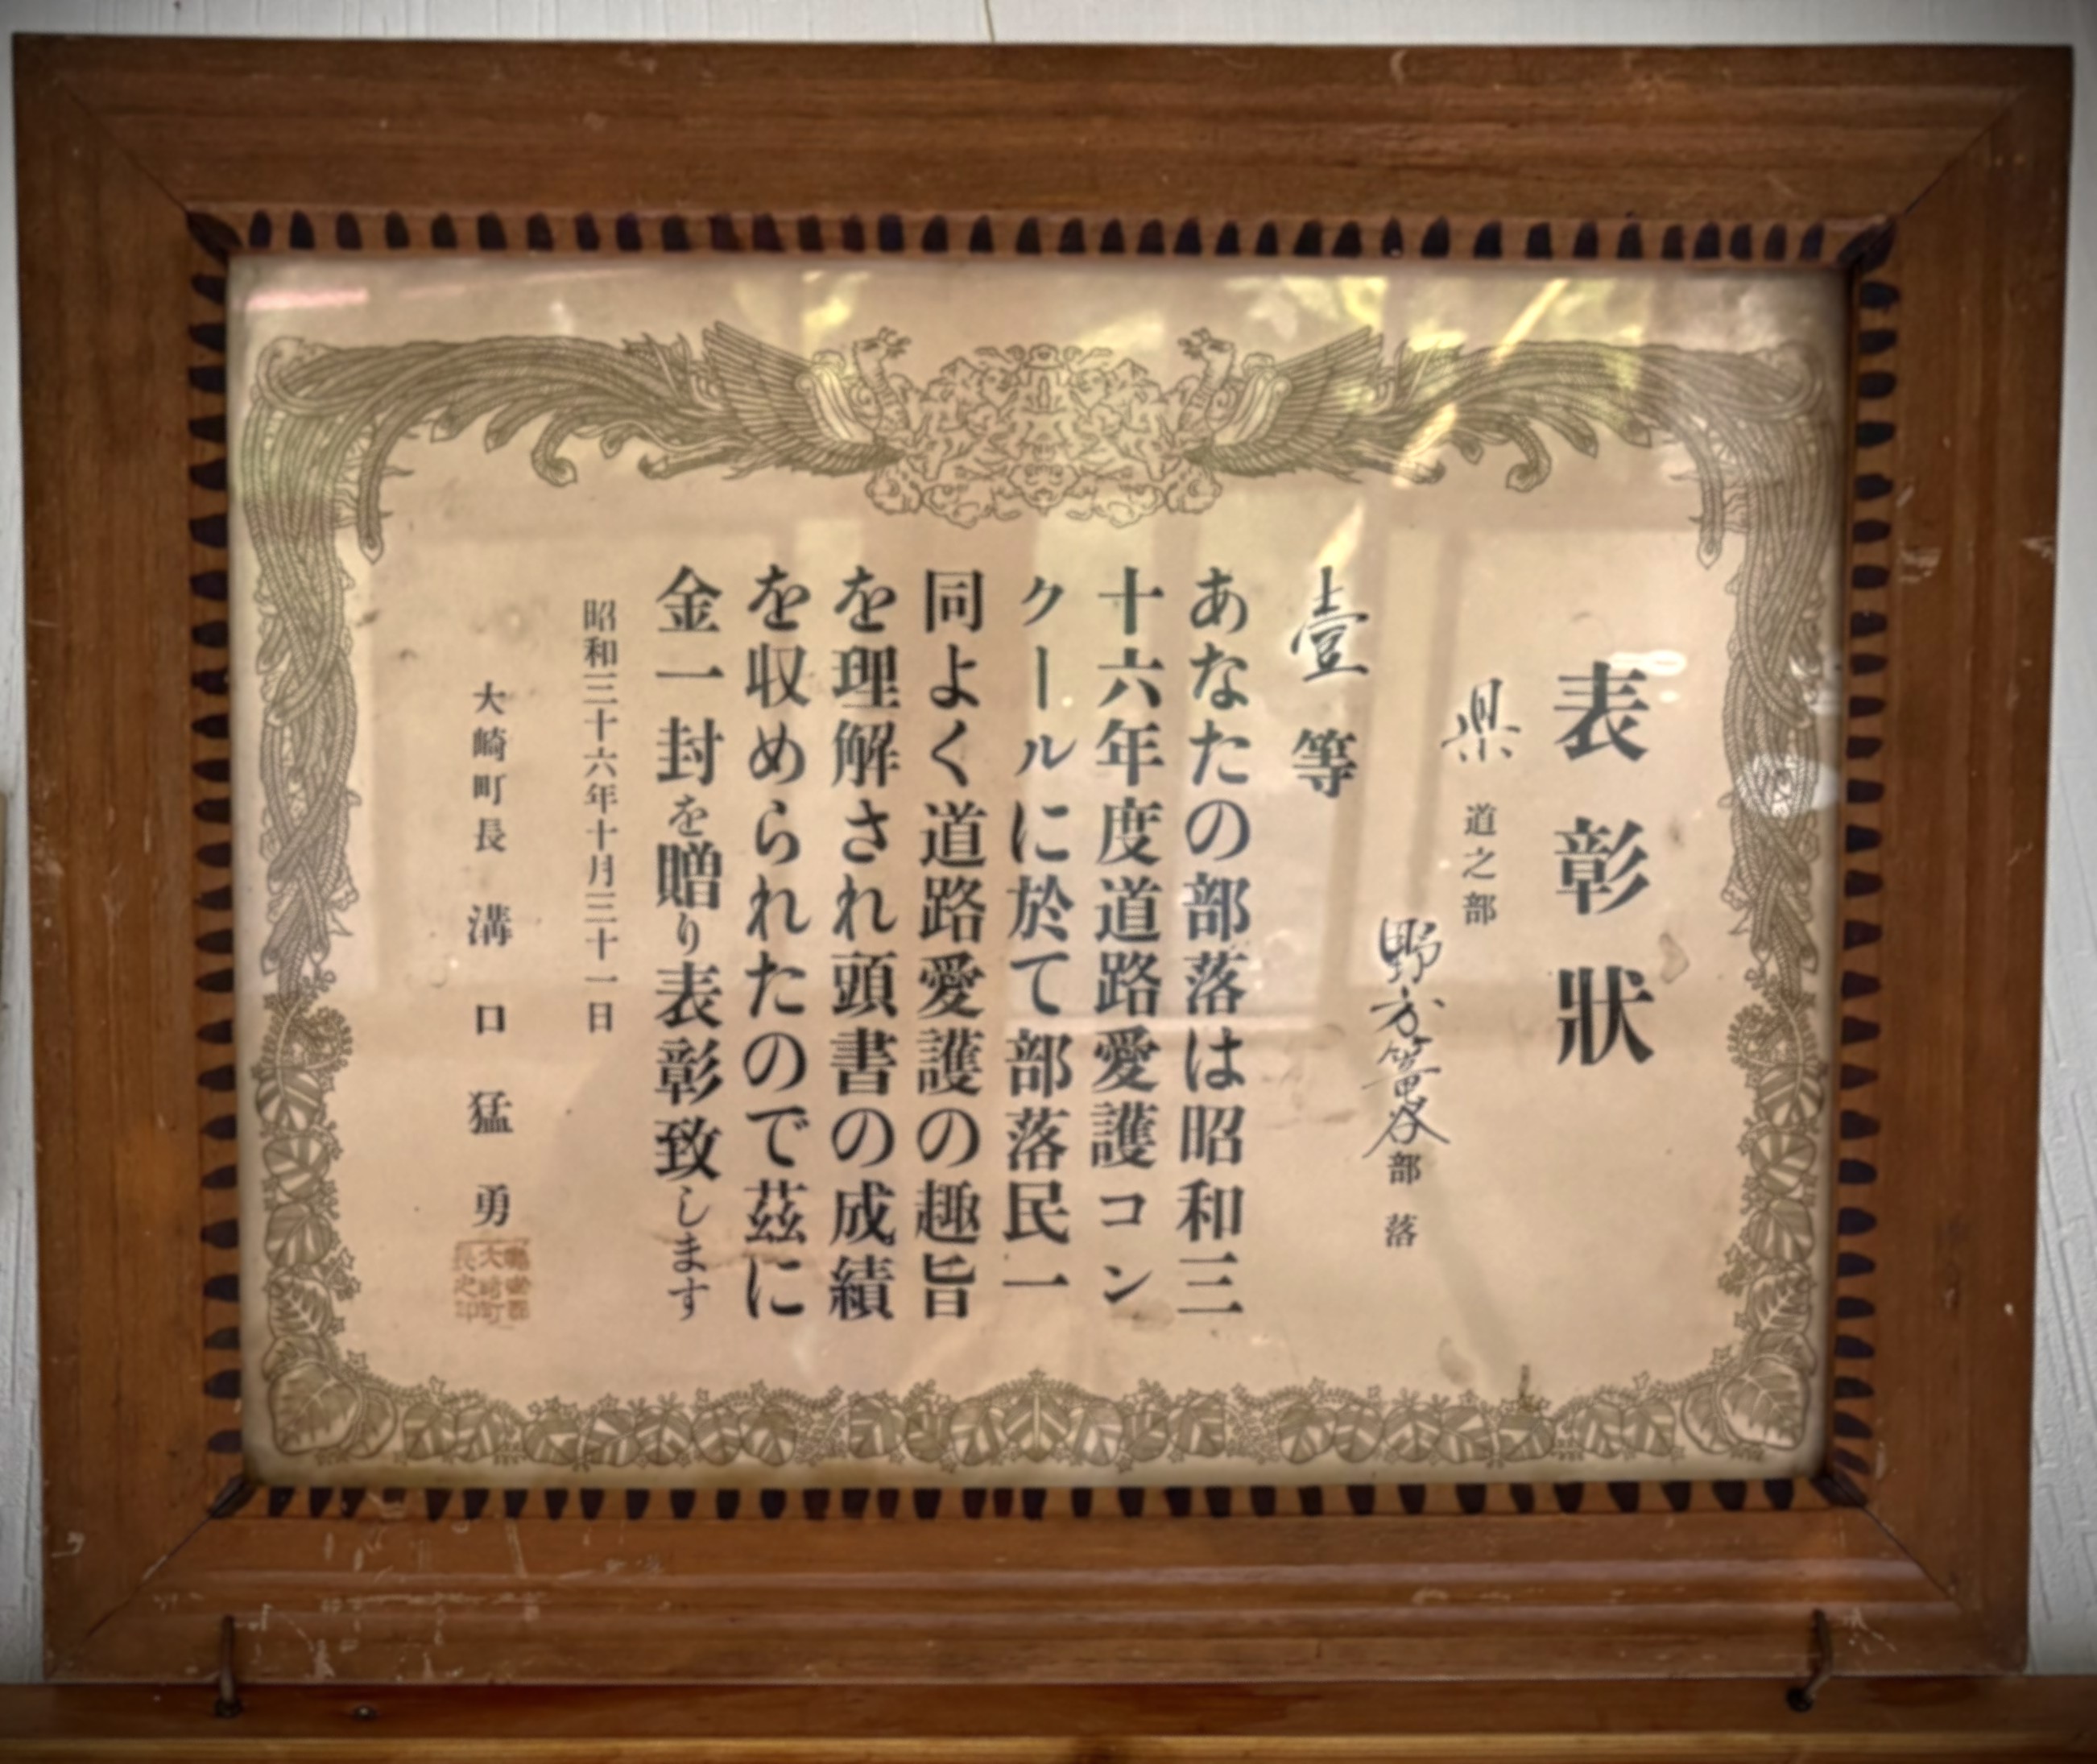 表彰狀
県道之部
野方
部落
壹等
あなたの部落は昭和三
十六年度道路愛護コン
クールに於て部落民一
同よく道路愛護の趣旨
を理解され頭書の成績
を収められたので茲に
金一封を贈り表彰致します
昭和三十六年十月三十一日
大崎町長 溝口猛勇